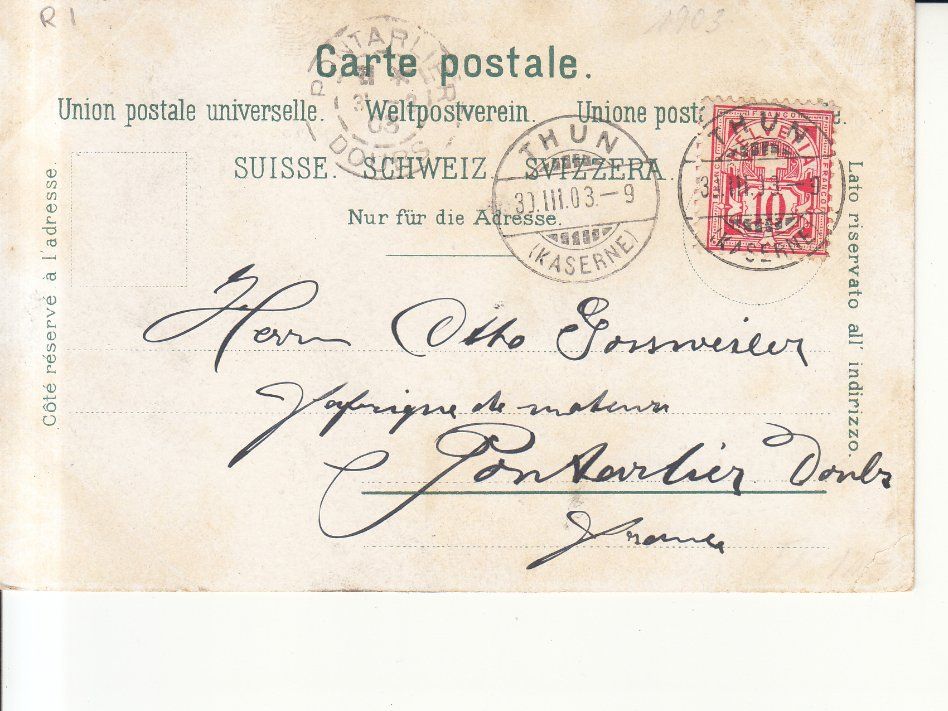 R 1
1903
Carte postale.
PONTARLIER
DOUBS
Union postale universelle. Weltpostverein. Unione posta e.
SUISSE. SCHWEIZ. SVIZZERA.
Nur für die Adresse.
THUN
30.III.03.–9
(KASERNE)
HELVETIA
10
THUN
30.III.03.–9
(KASERNE)
Côté réservé à l'adresse
Lato riservato all' indirizzo.
Herrn Otto Gossweiler
Fabrique de moteurs
Pontarlier Doubs
France